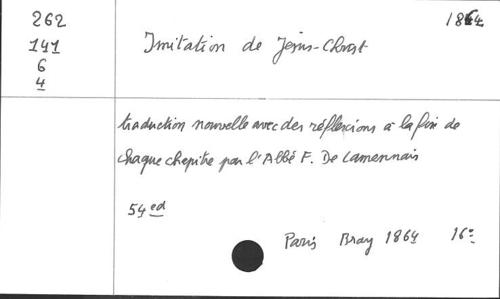 262
141
6
4
1864
Imitation de Jésus-Christ
traduction nouvelle avec des réflexions à la fin de
chaque chapitre par l'Abbé F. De Lamennais
54 ed
Paris Bray 1864 16°